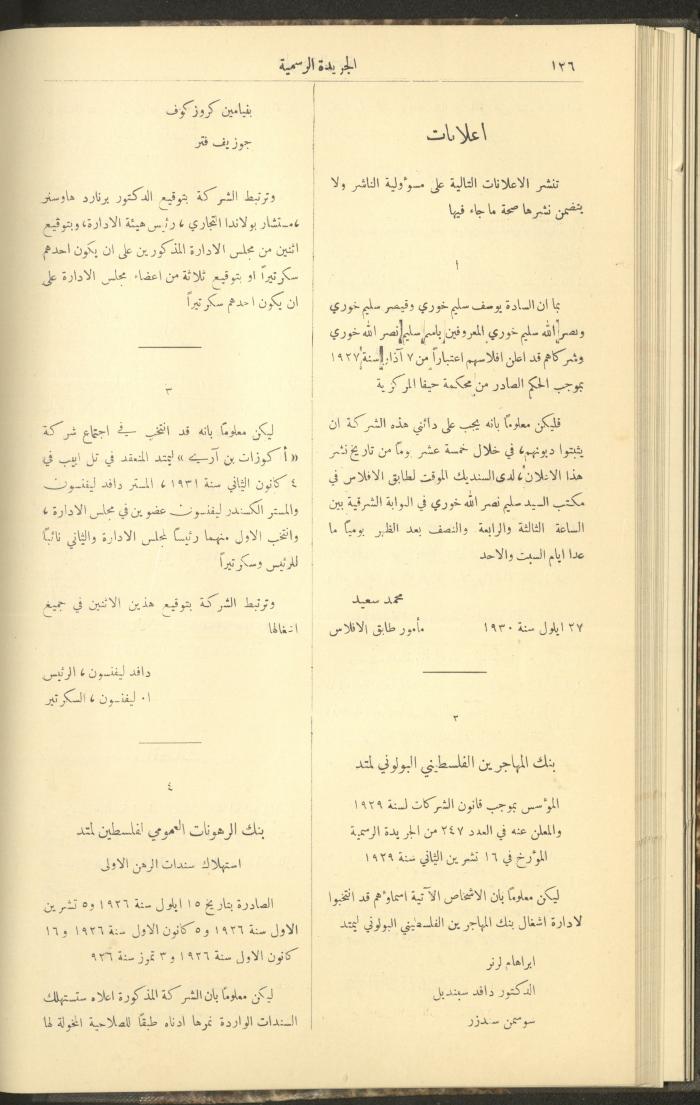 ١٢٦
الجريدة الرسمية
اعلانات
تنشر الاعلانات التالية على مسوؤلية الناشر ولا
يتضمن نشرها صحة ما جاء فيها
١
بما ان السادة يوسف سليم خوري وقيصر سليم خوري
ونصر الله سليم خوري المعروفين باسم سليم نصر الله خوري
وشركاهم قد اعلن افلاسهم اعتباراً من ٧ آذار سنة ١٩٢٧
بموجب الحكم الصادر من محكمة حيفا المركزية
فليكن معلوماً بانه يجب على دائني هذه الشركة ان
يثبتوا ديونهم، في خلال خمسة عشر يوماً من تاريخ نشر
هذا الاعلان، لدى السنديك الموقت لطابق الافلاس في
مكتب السيد سليم نصر الله خوري في البوابة الشرقية بين
الساعة الثالثة والرابعة والنصف بعد الظهر يومياً ما
عدا ايام السبت والاحد
محمد سعيد
٢٧ ايلول سنة ١٩٣٠ مأمور طابق الافلاس
٢
بنك المهاجرين الفلسطيني البولوني لمتد
المؤسس بموجب قانون الشركات لسنة ١٩٢٩
والمعلن عنه في العدد ٢٤٧ من الجريدة الرسمية
المؤرخ في ١٦ تشرين الثاني سنة ١٩٢٩
ليكن معلوماً بان الاشخاص الآتية اسماؤهم قد انتخبوا
لادارة اشغال بنك المهاجرين الفلسطيني البولوني ليمتد
ابراهام لرنر
الدكتور دافد سيندبل
سوسمن سندزر
بفيامين كروزكوف
جوزيف فتر
وترتبط الشركة بتوقيع الدكتور برنارد هاوسنر
، مستشار بولاندا التجاري ، رئيس هيئة الادارة، وبتوقيع
اثنين من مجلس الادارة المذكورين على ان يكون احدهم
سكرتيراً او بتوقيع ثلاثة من اعضاء مجلس الادارة على
ان يكون احدهم سكرتيراً
٣
ليكن معلوماً بانه قد انتخب في اجتماع شركة
«أكوزات بن آريه» ليمتد المنعقد في تل ابيب في
٤ كانون الثاني سنة ١٩٣١ ، المستر دافد ليفنسون
والمستر الكسندر ليفنسون عضوين في مجلس الادارة ،
وانتخب الاول منهما رئيساً لمجلس الادارة والثاني نائباً
للرئيس وسكرتيراً
وترتبط الشركة بتوقيع هذين الاثنين في جميع
اشغالها
دافد ليفنسون ، الرئيس
ا. ليفنسون ، السكرتير
٤
بنك الرهونات العمومي لفلسطين لمتد
استهلاك سندات الرهن الاولى
الصادرة بتاريخ ١٥ ايلول سنة ١٩٢٦ و ٥ تشرين
الاول سنة ١٩٢٦ و ٥ كانون الاول سنة ١٩٢٦ و ١٦
كانون الاول سنة ١٩٢٦ و ٣ تموز سنة ٩٢٦
ليكن معلوماً بان الشركة المذكورة اعلاه ستستهلك
السندات الواردة نمرها ادناه طبقاً للصلاحية المخولة لها